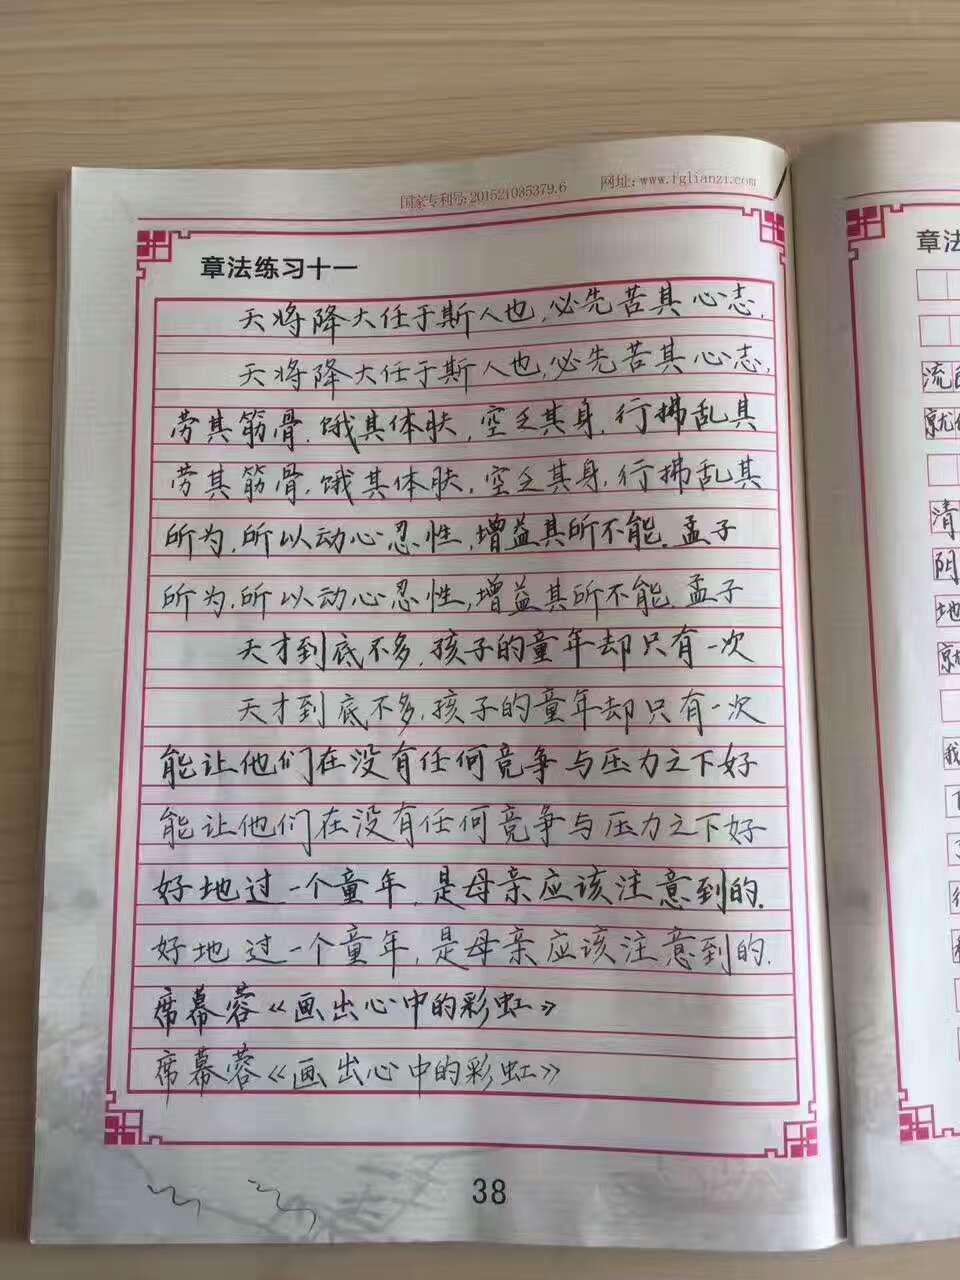 国家专利号:201521035379.6 网址:www.fglianzi.com
章法练习十一
天将降大任于斯人也,必先苦其心志,
天将降大任于斯人也,必先苦其心志,
劳其筋骨,饿其体肤,空乏其身,行拂乱其
劳其筋骨,饿其体肤,空乏其身,行拂乱其
所为,所以动心忍性,增益其所不能.孟子
所为,所以动心忍性,增益其所不能.孟子
天才到底不多,孩子的童年却只有一次
天才到底不多,孩子的童年却只有一次
能让他们在没有任何竞争与压力之下好
能让他们在没有任何竞争与压力之下好
好地过一个童年,是母亲应该注意到的.
好地过一个童年,是母亲应该注意到的.
席慕蓉《画出心中的彩虹》
席慕蓉《画出心中的彩虹》
38
章法
流
就
清
阴
地
就
我